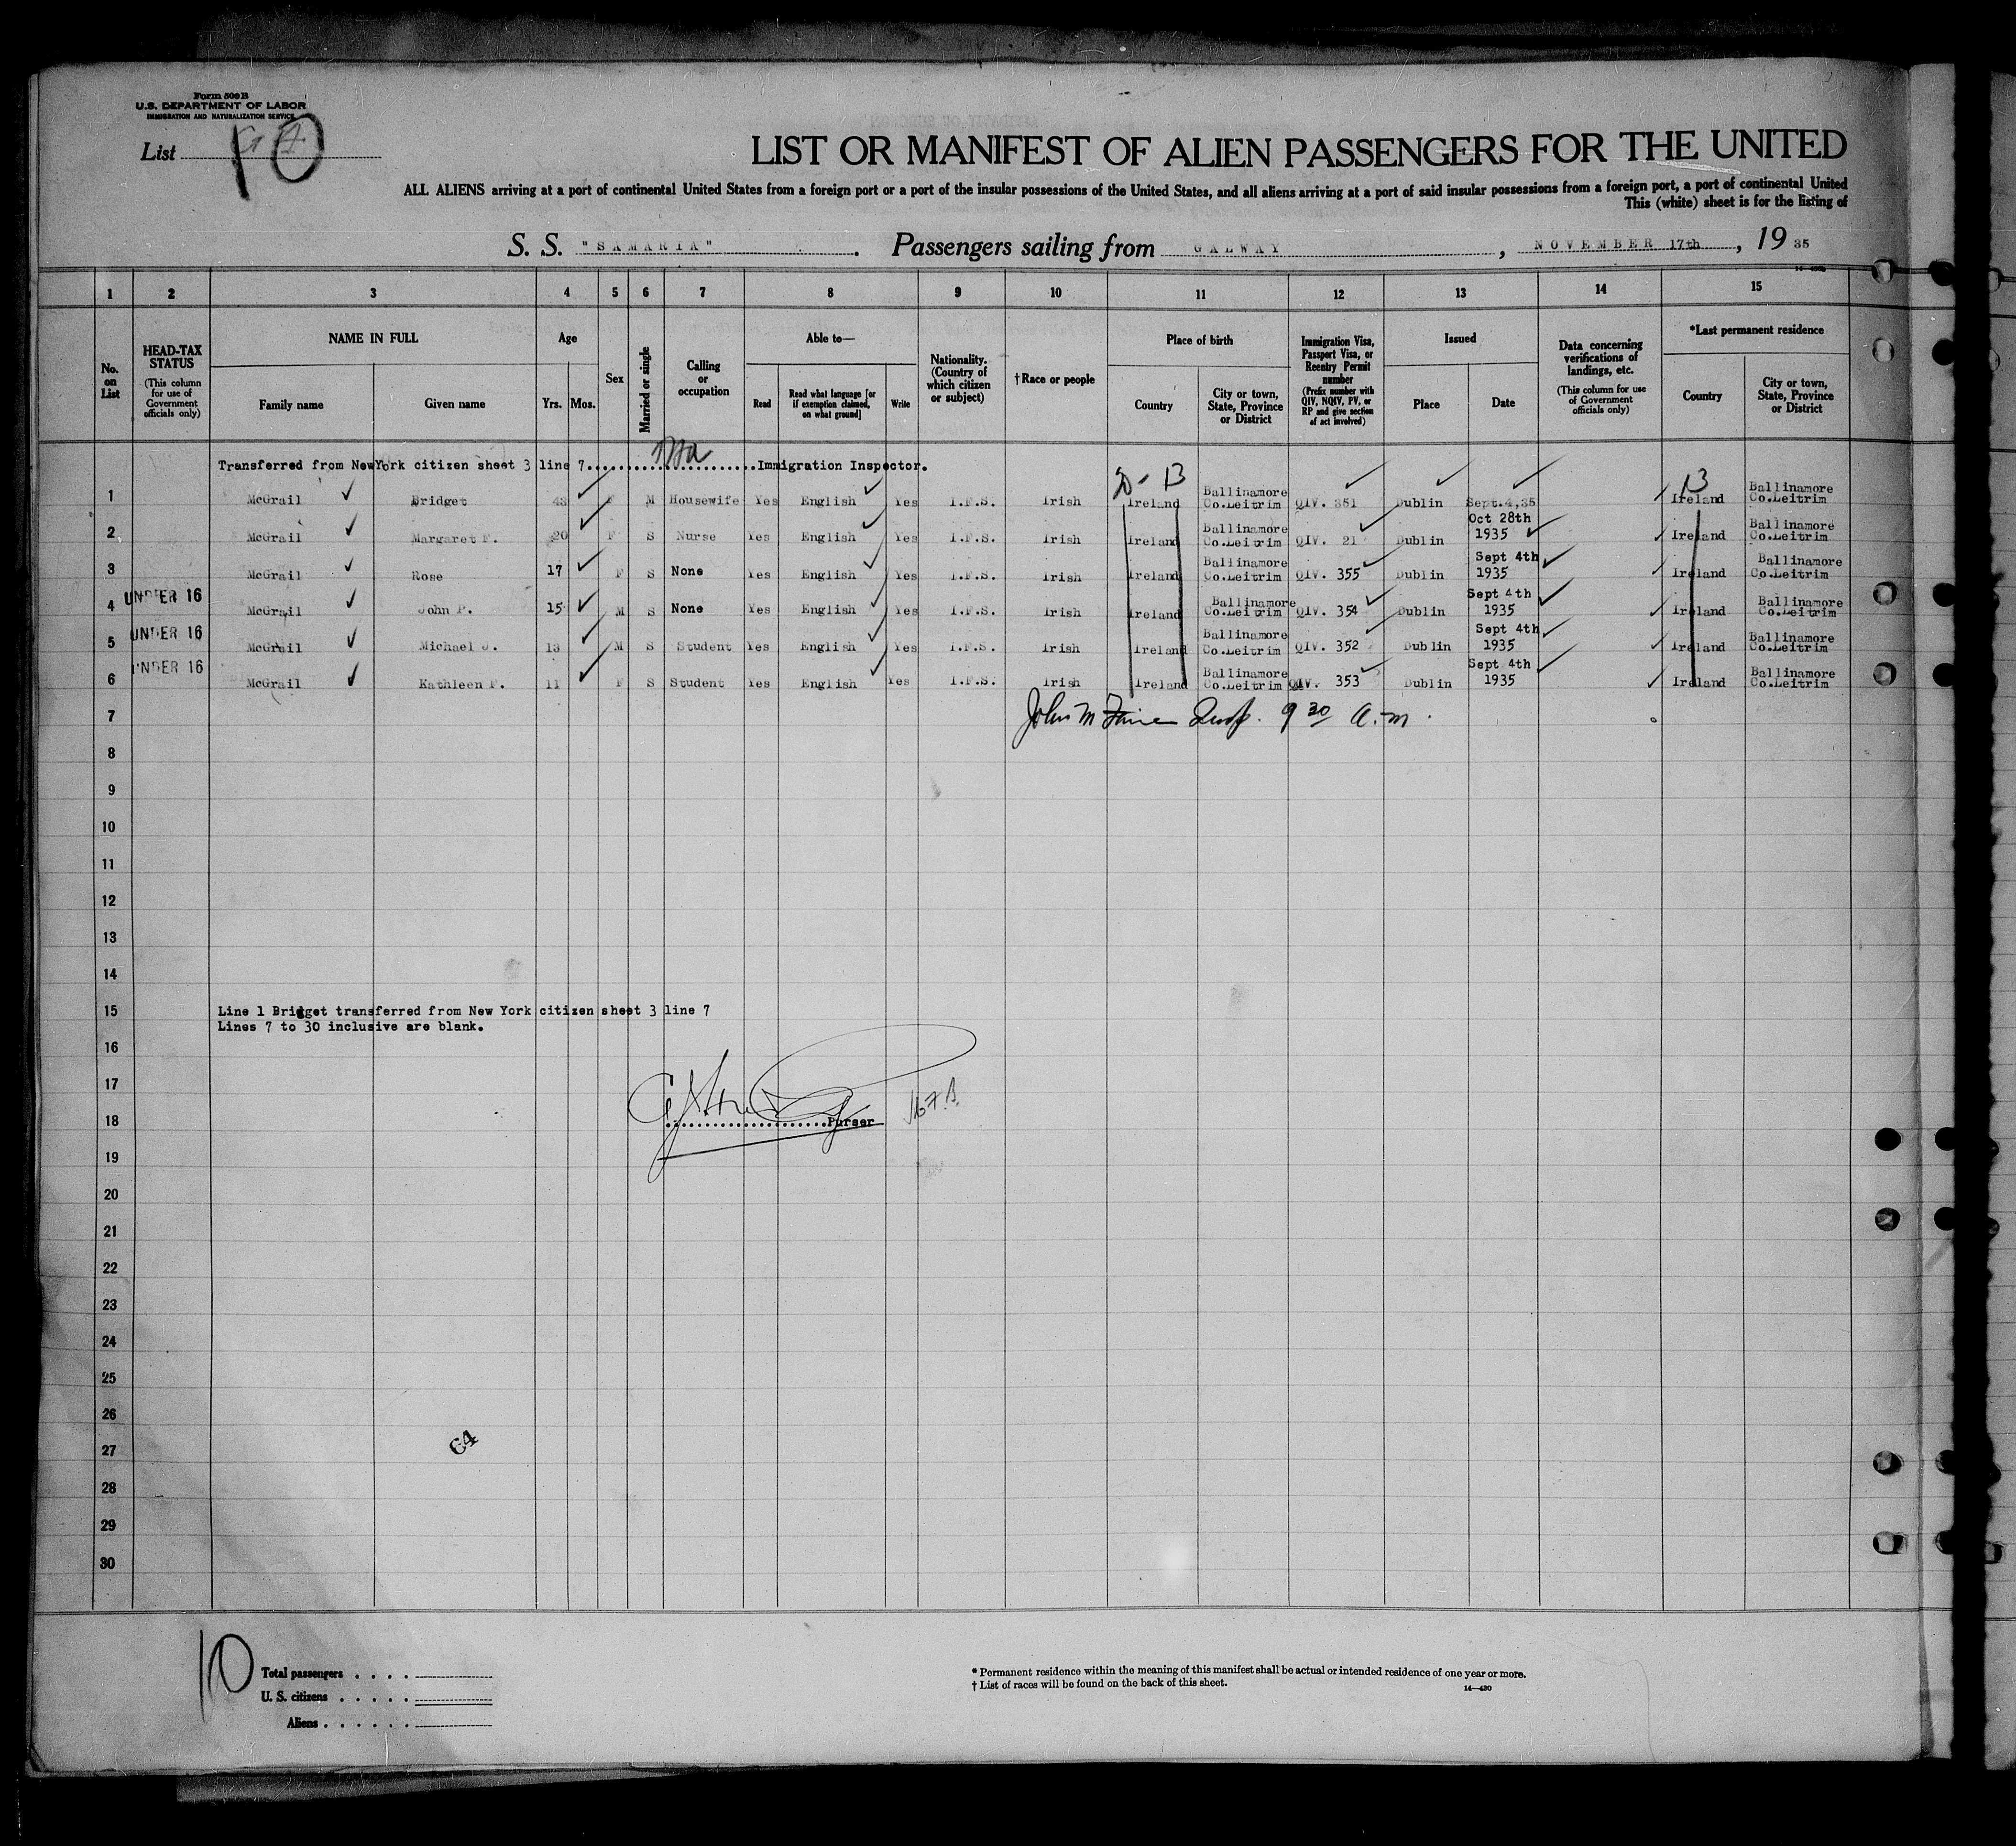 Form 500B
U.S. DEPARTMENT OF LABOR
IMMIGRATION AND NATURALIZATION SERVICE
List 10
LIST OR MANIFEST OF ALIEN PASSENGERS FOR THE UNITED
ALL ALIENS arriving at a port of continental United States from a foreign port or a port of the insular possessions of the United States, and all aliens arriving at a port of said insular possessions from a foreign port, a port of continental United
This (white) sheet is for the listing of
S. S. "SAMARIA" . Passengers sailing from GALWAY , NOVEMBER 17th , 19 35
1 2 3 4 5 6 7 8 9 10 11 12 13 14 15
No. on List
HEAD-TAX STATUS
(This column for use of Government officials only)
NAME IN FULL
Family name
Given name
Age
Yrs. Mos.
Sex
Married or single
Calling or occupation
Able to—
Read
Read what language [or if exemption claimed, on what ground]
Write
Nationality. (Country of which citizen or subject)
†Race or people
Place of birth
Country
City or town, State, Province or District
Immigration Visa, Passport Visa, or Reentry Permit number
(Prefix number with QIV, NQIV, PV, or RP and give section of act involved)
Issued
Place
Date
Data concerning verifications of landings, etc.
(This column for use of Government officials only)
*Last permanent residence
Country
City or town, State, Province or District
Transferred from NewYork citizen sheet 3 line 7 Immigration Inspector.
1 McGrail Bridget 43 F M Housewife Yes English Yes I.F.S. Irish Ireland Ballinamore Co.Leitrim QIV. 351 Dublin Sept.4,35 Ireland Ballinamore Co.Leitrim
2 McGrail Margaret F. 20 F S Nurse Yes English Yes I.F.S. Irish Ireland Ballinamore Co.Leitrim QIV. 21 Dublin Oct 28th 1935 Ireland Ballinamore Co.Leitrim
3 McGrail Rose 17 F S None Yes English Yes I.F.S. Irish Ireland Ballinamore Co.Leitrim QIV. 355 Dublin Sept 4th 1935 Ireland Ballinamore Co.Leitrim
4 UNDER 16 McGrail John P. 15 M S None Yes English Yes I.F.S. Irish Ireland Ballinamore Co.Leitrim QIV. 354 Dublin Sept 4th 1935 Ireland Ballinamore Co.Leitrim
5 UNDER 16 McGrail Michael J. 13 M S Student Yes English Yes I.F.S. Irish Ireland Ballinamore Co.Leitrim QIV. 352 Dublin Sept 4th 1935 Ireland Ballinamore Co.Leitrim
6 UNDER 16 McGrail Kathleen F. 11 F S Student Yes English Yes I.F.S. Irish Ireland Ballinamore Co.Leitrim QIV. 353 Dublin Sept 4th 1935 Ireland Ballinamore Co.Leitrim
7 John M 9 30 a.m.
8
9
10
11
12
13
14
15 Line 1 Bridget transferred from New York citizen sheet 3 line 7
Lines 7 to 30 inclusive are blank.
16
17
18 Purser
19
20
21
22
23
24
25
26
27 64
28
29
30
10
Total passengers
U. S. citizens
Aliens
* Permanent residence within the meaning of this manifest shall be actual or intended residence of one year or more.
† List of races will be found on the back of this sheet.
14—430